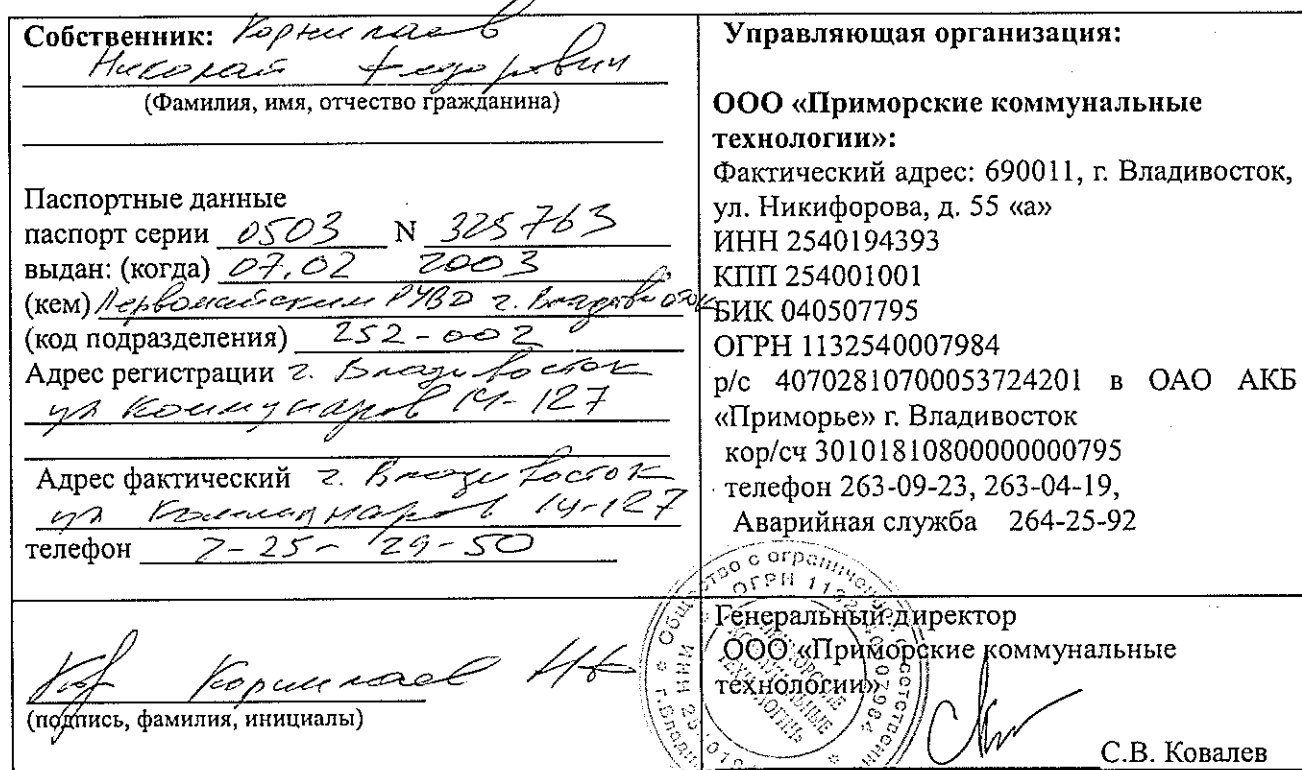 Собственник: Корнилаев
Николай Федорович
(Фамилия, имя, отчество гражданина)
Паспортные данные
паспорт серии 0503 N 325763
выдан: (когда) 07.02 2003
(кем) Первомайским РУВД г. Владивосток
(код подразделения) 252-002
Адрес регистрации г. Владивосток
ул Коммунаров 14-127
Адрес фактический г. Владивосток
ул Коммунаров 14-127
телефон 2-25-29-50
Корнилаев НФ
(подпись, фамилия, инициалы)
Управляющая организация:
ООО «Приморские коммунальные
технологии»:
Фактический адрес: 690011, г. Владивосток,
ул. Никифорова, д. 55 «а»
ИНН 2540194393
КПП 254001001
БИК 040507795
ОГРН 1132540007984
р/с 40702810700053724201 в ОАО АКБ
«Приморье» г. Владивосток
кор/сч 30101810800000000795
телефон 263-09-23, 263-04-19,
Аварийная служба 264-25-92
Генеральный директор
ООО «Приморские коммунальные
технологии»
С.В. Ковалев